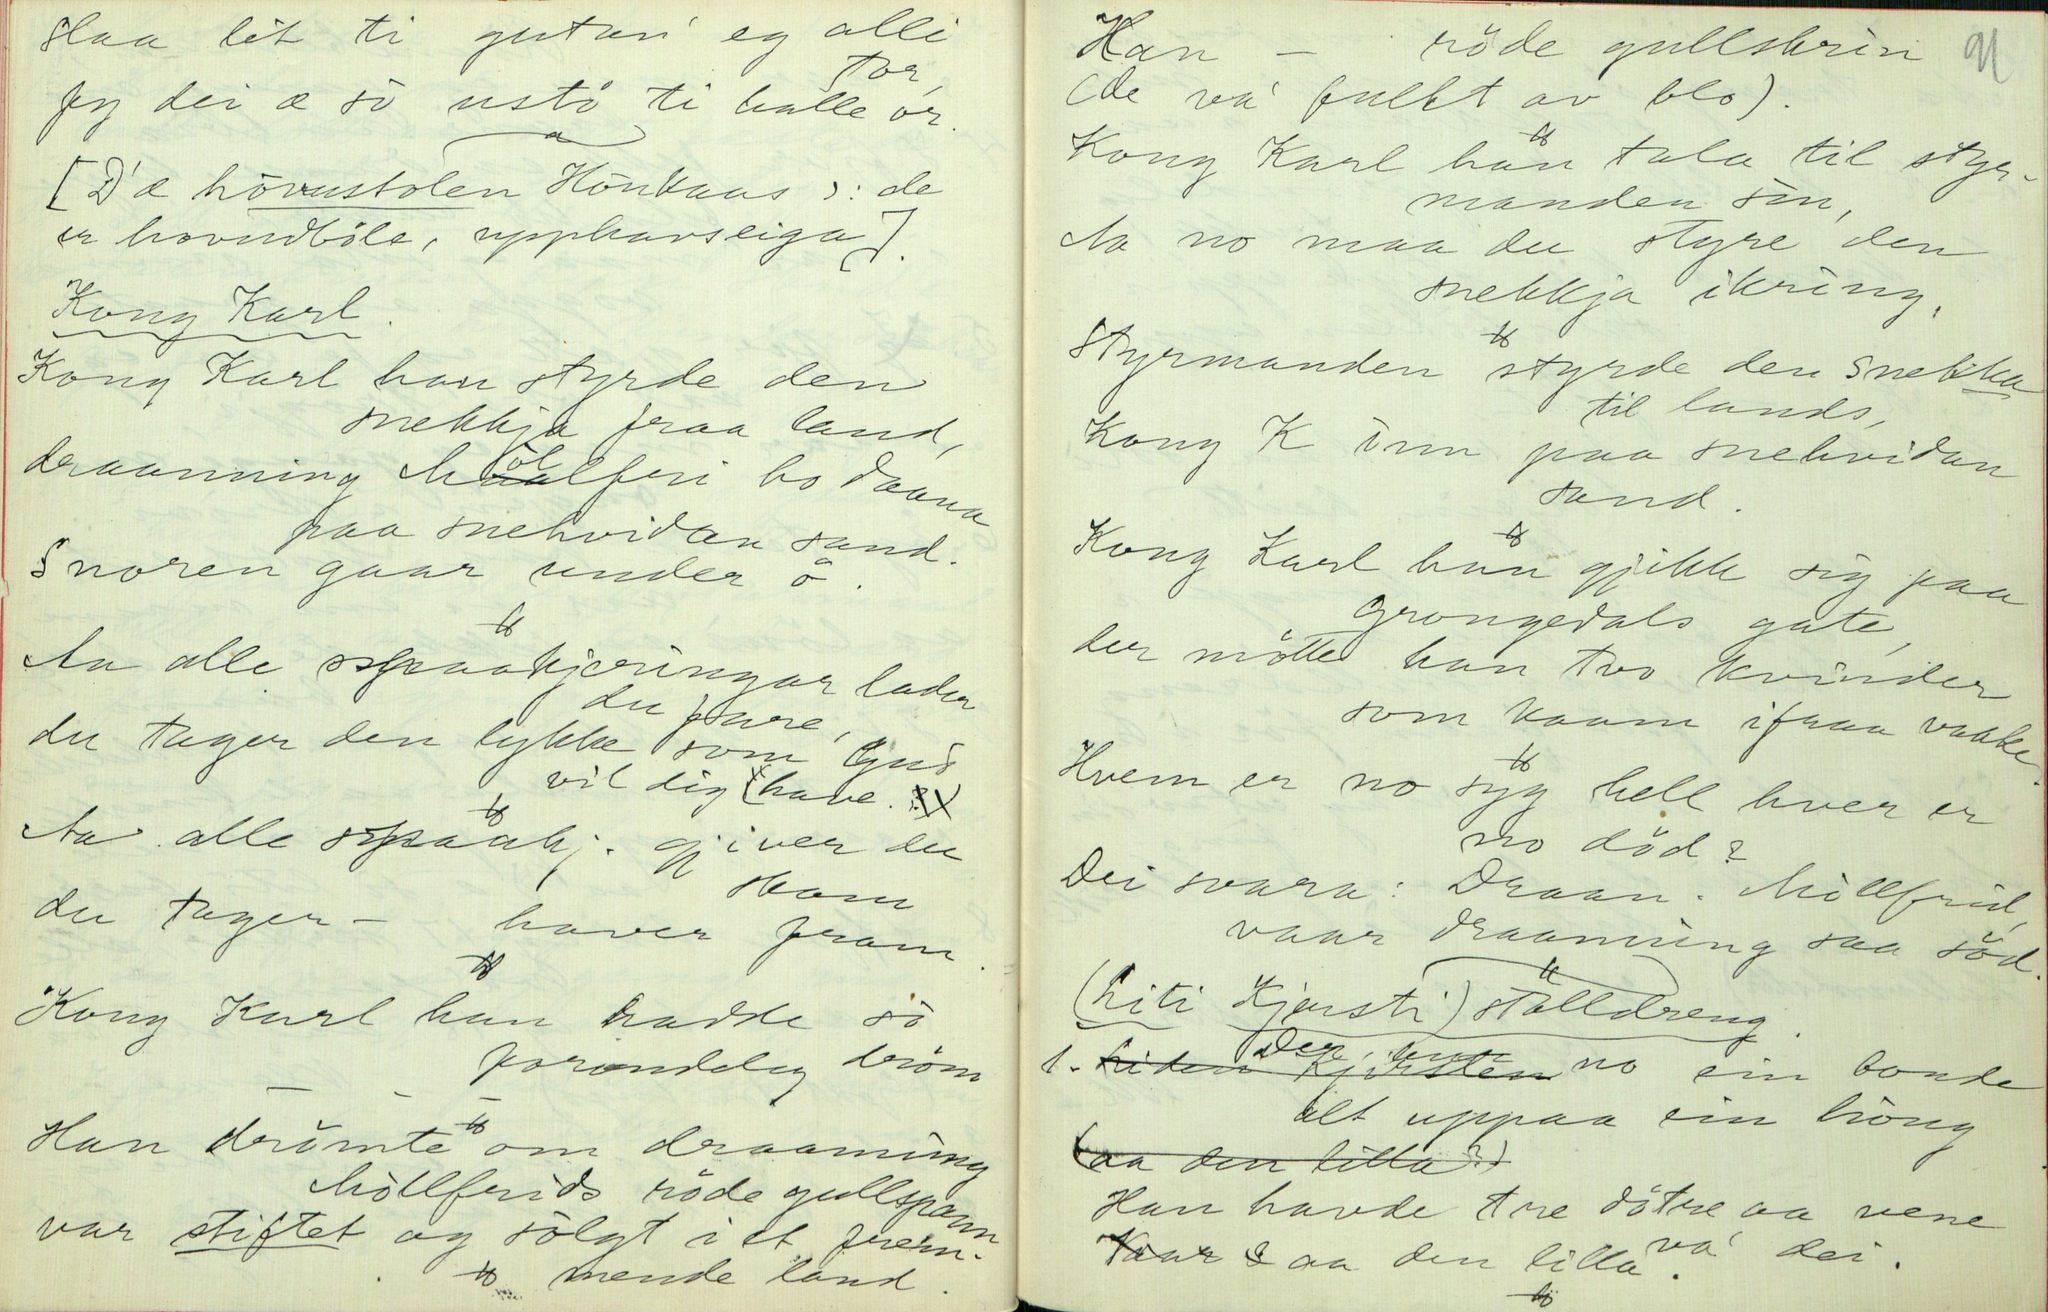 Slaa lit ti gutan' eg alli
tor,
fy dei æ so usto ti halle or.
[D'æ hovustolen Honkaas ɔ: de
er hovudböle, upphavseiga].
Kong Karl.
Kong Karl han styrde den
snekkja fraa land,
draanning Möllfri ho daana
paa snehvidan sand.
Snoren gaar under ö.
Aa alle spaakjeringar lader
du fare,
du tager den lykke som Gud
vil dig have.
Aa alle spaakj. gjiver du
skam
du tager – haver fram.
Kong Karl han hadde so
forundeleg dröm
Han drömte om draaning
Möllfrids röde gullspann
var stiftet og sölgt i et frem-
mende land.
91
Han – röde gullskrin
(de va' fullt av blo).
Kong Karl han tala til styr-
manden sin,
Aa no maa du styre den
snekkja ikring,
Styrmanden styrde den snekka
til lands,
Kong K inn paa snehvidan
sand.
Kong Karl han gjikk sig paa
Grongedals gate,
der mötte han tvo kvinder
som kaam ifraa vaake.
Hvem er no syg hell hver er
no död?
Dei svara: Draan. Möllfrid,
vaar draaning saa söd.
(Liti Kjersti) stalldreng.
1. Liden Kjersten
Der, no ein bonde
alt uppaa ein houg
(aa den lilla?)
Han havde tre dötre aa vene
va' dei.
Kaar & aa den lilla.